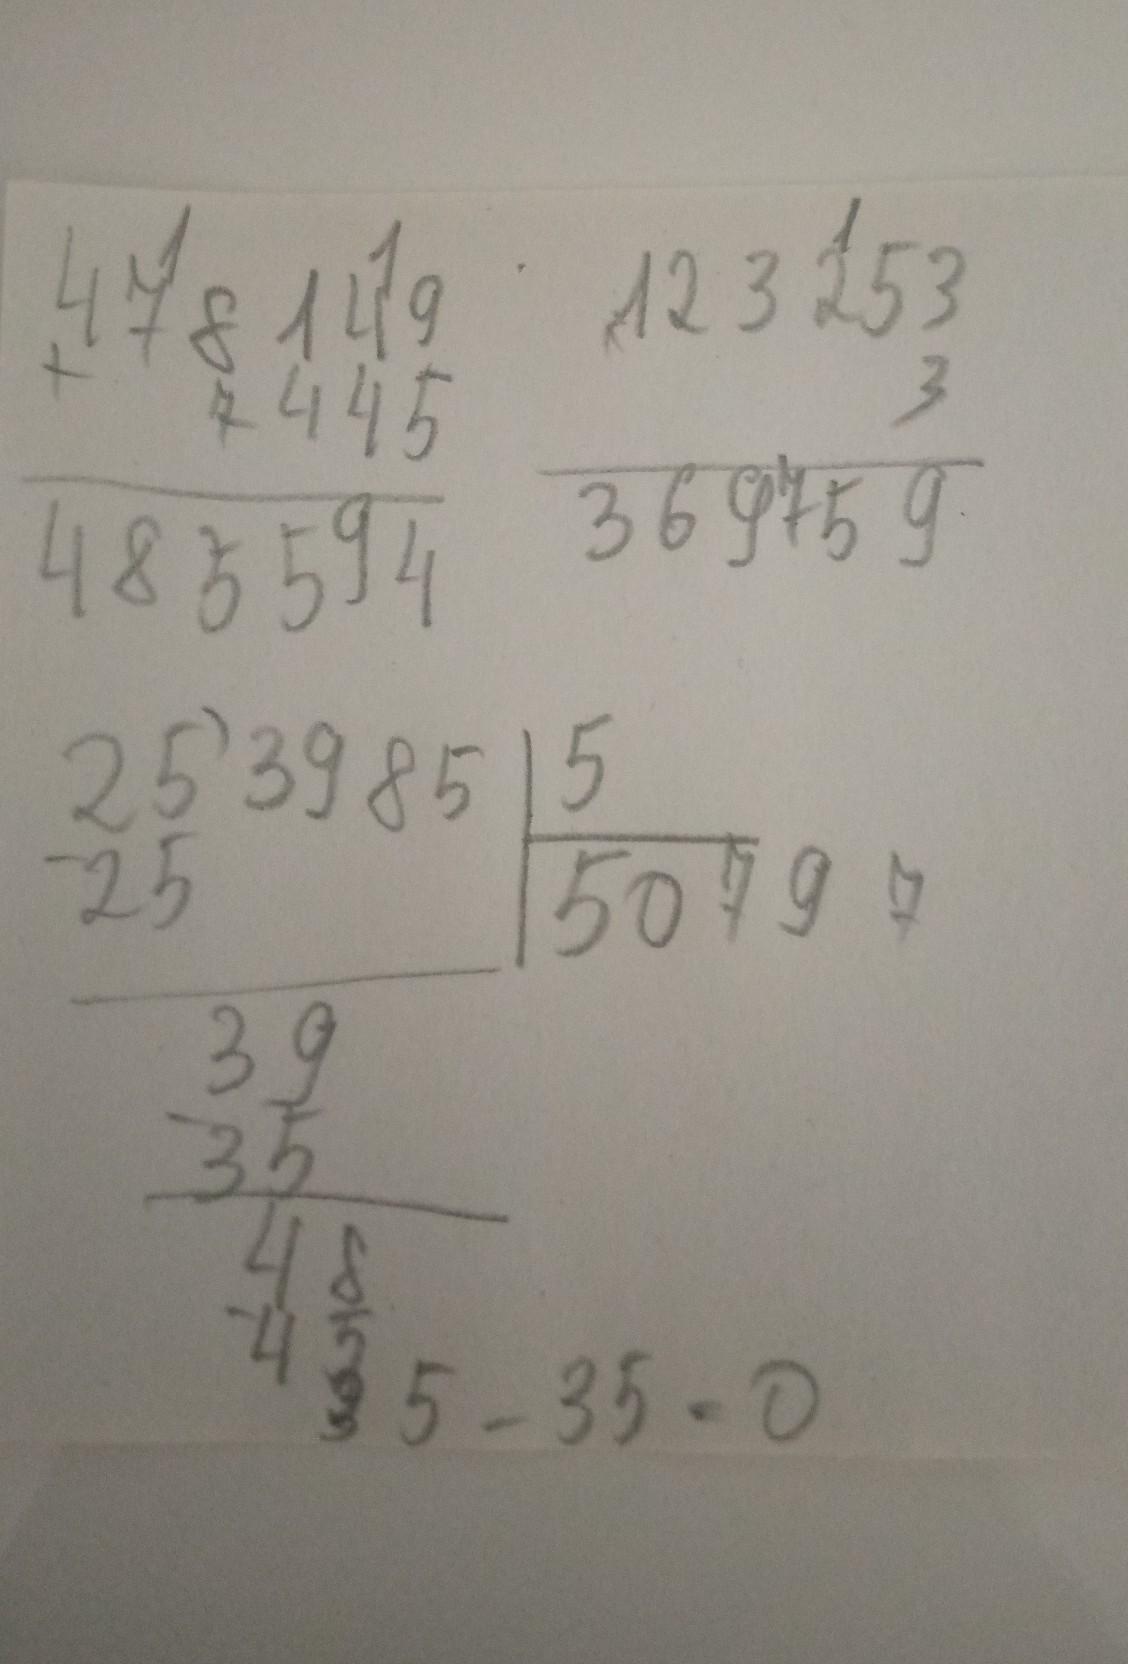 478149
+ 7445
485594
123253
3
369759
253985 5
-25 50797
39
-35
48
-45
35-35=0